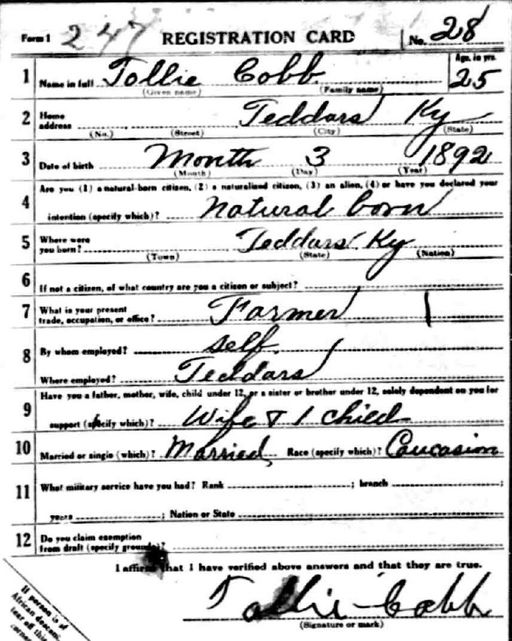 Form 1 247 REGISTRATION CARD No. 28
1 Name in full Tollie Cobb Age, in yrs. 25
(Given name) (Family name)
2 Home address Teddars Ky
(No.) (Street) (City) (State)
3 Date of birth Month 3 1892
(Month) (Day) (Year)
4 Are you (1) a natural-born citizen, (2) a naturalized citizen, (3) an alien, (4) or have you declared your
intention (specify which)? Natural born
5 Where were you born? Teddars Ky
(Town) (State) (Nation)
6 If not a citizen, of what country are you a citizen or subject?
7 What is your present trade, occupation, or office? Farmer
8 By whom employed? self
Where employed? Teddars
9 Have you a father, mother, wife, child under 12, or a sister or brother under 12, solely dependent on you for
support (specify which)? Wife & 1 child
10 Married or single (which)? Married Race (specify which)? Caucasion
11 What military service have you had? Rank ; branch ;
years ; Nation or State
12 Do you claim exemption from draft (specify grounds)?
I affirm that I have verified above answers and that they are true.
Tollie Cobb
(Signature or mark)
If person is of
African descent,
tear off this
corner